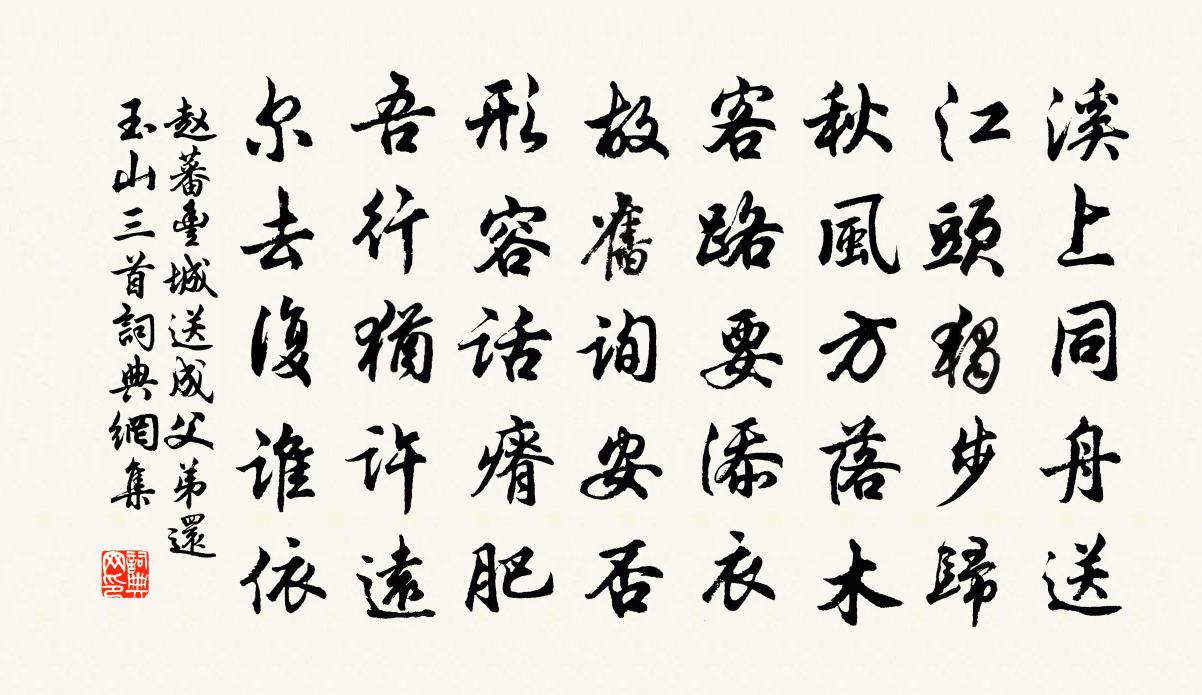 溪上同舟送
江頭獨步歸
秋風方落木
客路要添衣
故舊詢安否
形容話瘠肥
吾行猶許遠
尔去復誰依
赵蕃豊城送成父弟還
玉山三首詞典網集
詞典
网印